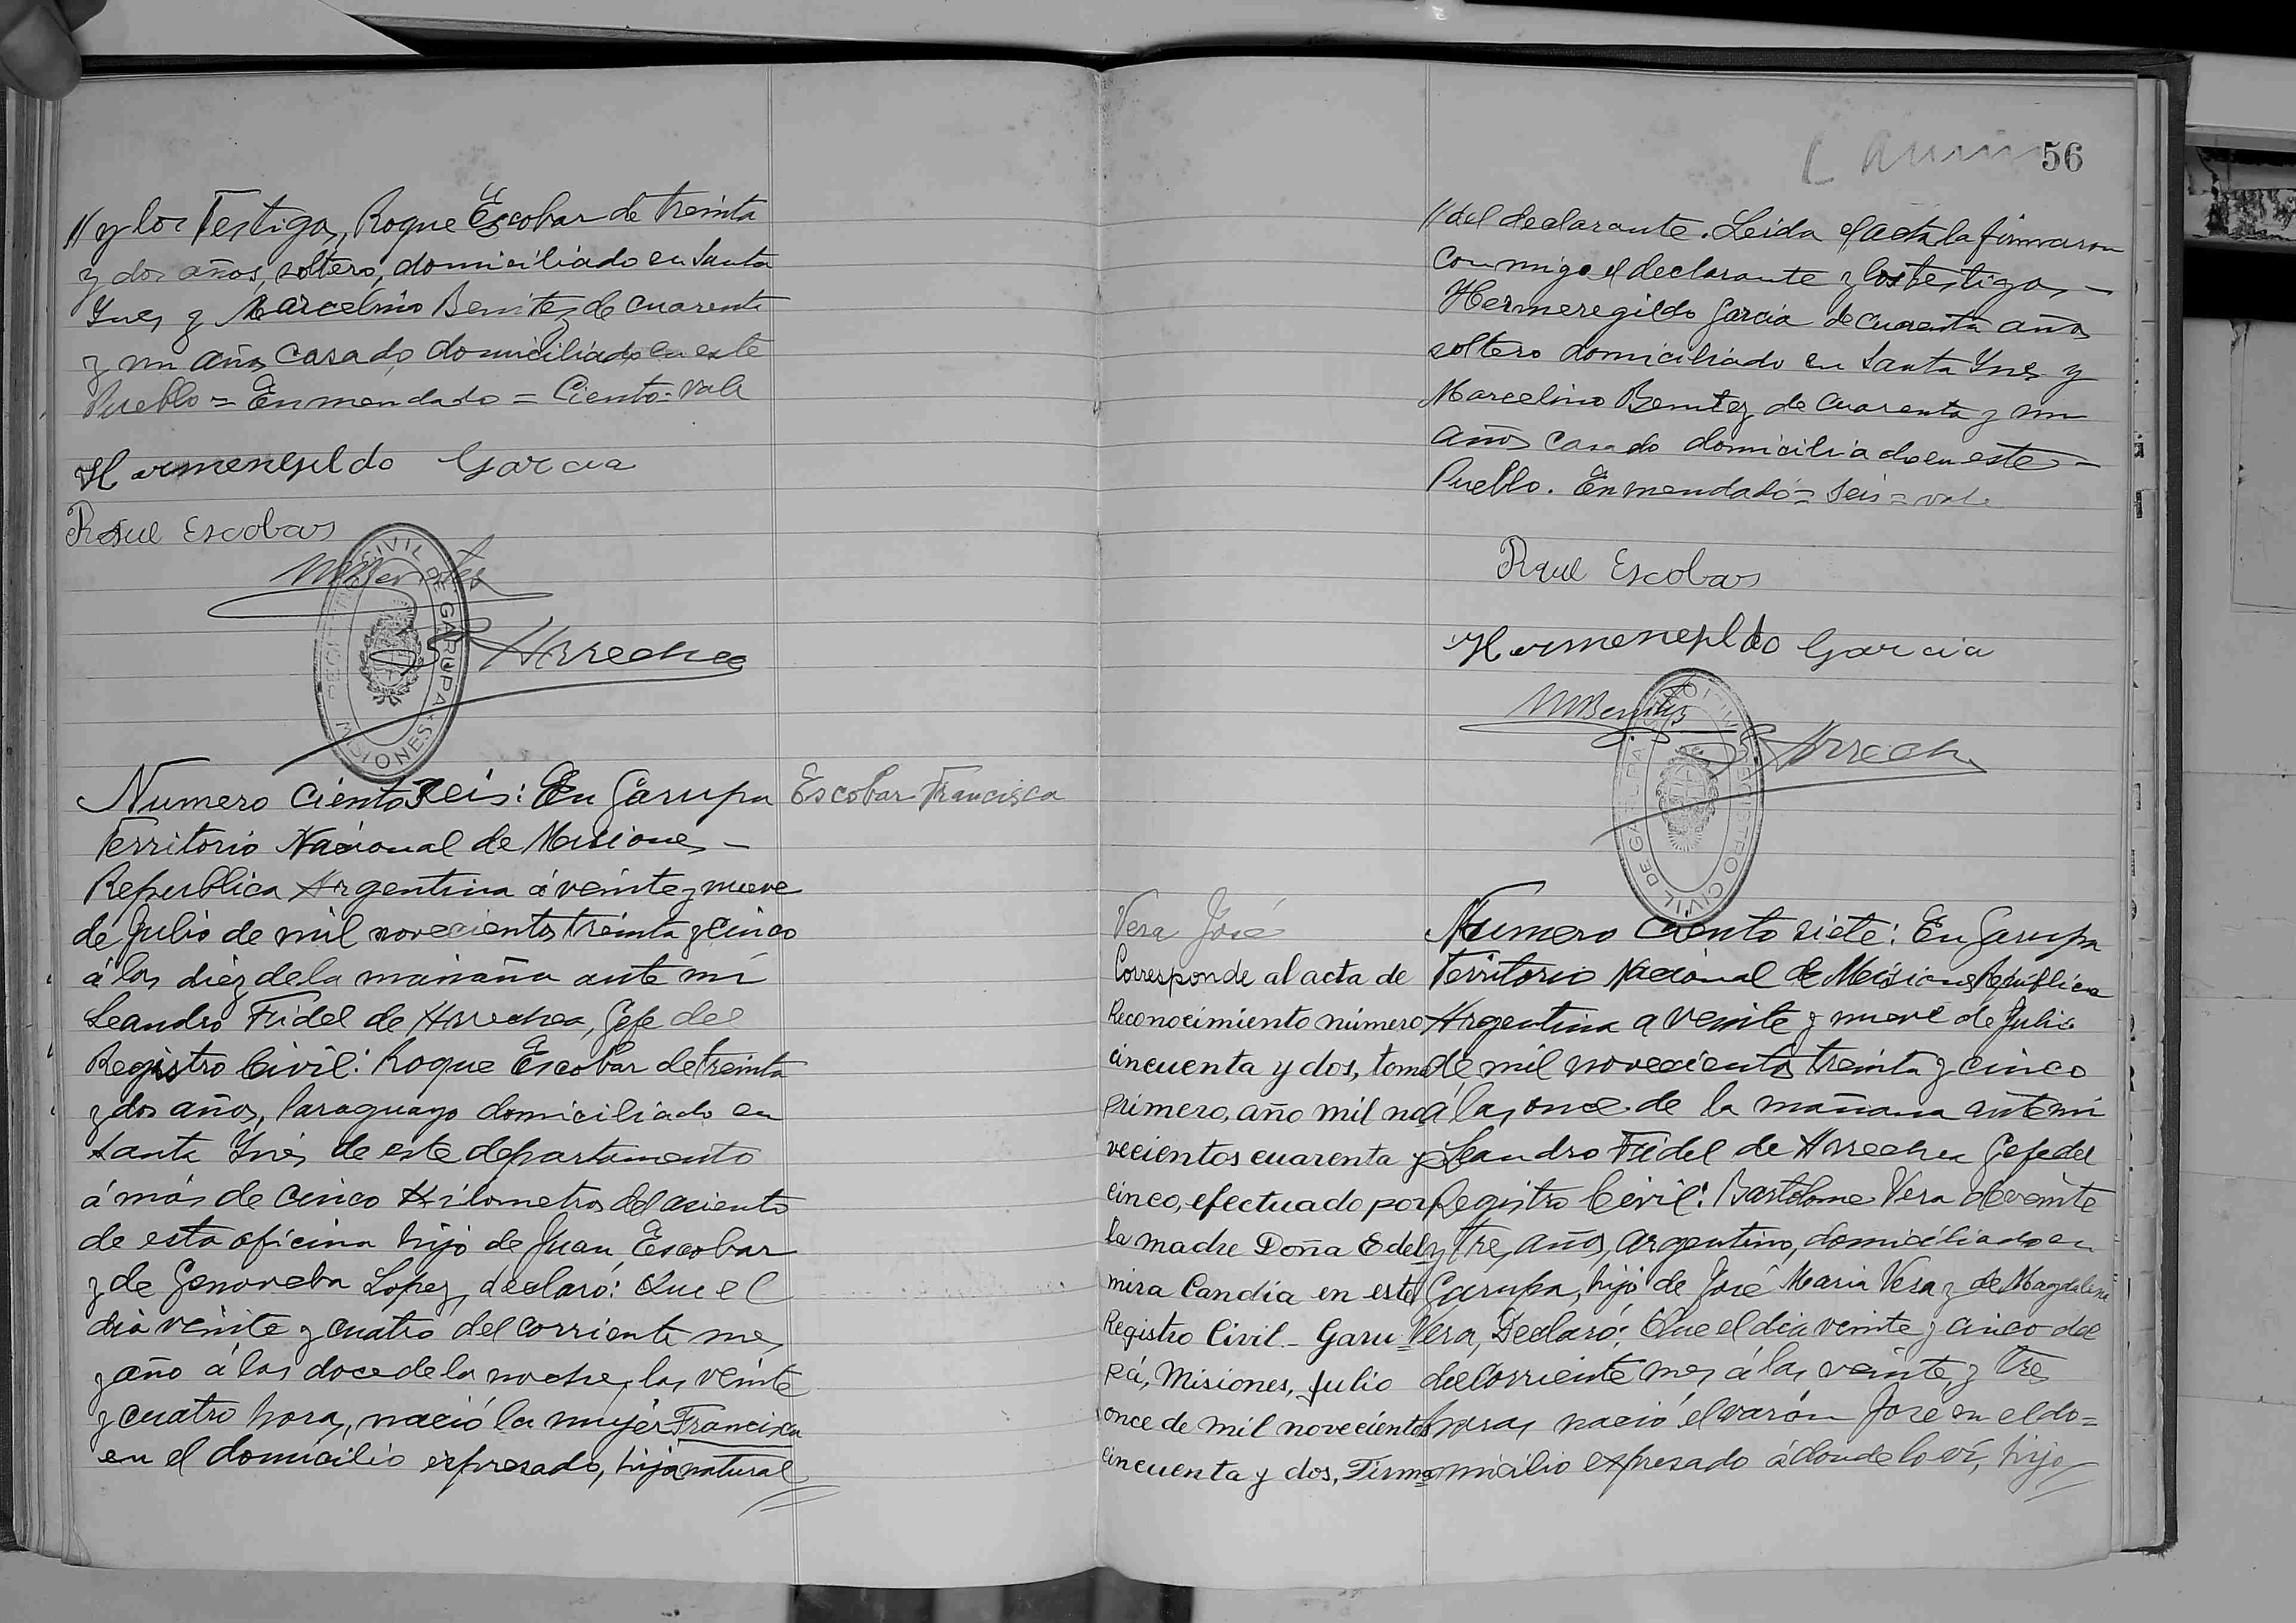 // y los Testigos, Roque Escobar de treinta
y dos años, soltero, domiciliado en Santa
Ynes y Marcelino Benitez de cuarenta
y un años casado, domiciliado en este
Pueblo = Enmendado = Ciento = vale
Hermenegildo Garcia
Raul Escobar
MBenitez
Arrechea
REGISTRO CIVIL DE GARUPA
MISIONES
Numero Ciento Seis: En Garupa
Territorio Nacional de Misiones -
Republica Argentina á veinte y nueve
de Julio de mil novecientos treinta y cinco
á las diez de la mañana ante mi
Leandro Fidel de Arrechea, Gefe del
Registro Civil: Roque Escobar de treinta
y dos años, Paraguayo domiciliado en
Santa Ynés de este departamento
á más de cinco Kilometros del asiento
de esta oficina hijo de Juan Escobar
y de Genoveba Lopez, declaró: Que el
dia veinte y cuatro del corriente mes
y año á las doce de la noche, las veinte
y cuatro horas, nació la mujer Francisca
en el domicilio expresado, hija natural //
Escobar Francisca
56
// del declarante. Leida el acta la firmaron
conmigo el declarante y los testigos -
Hermeregildo Garcia de cuarenta años
soltero domiciliado en Santa Ynes y
Marcelino Benitez de cuarenta y un
años casado domiciliado en este -
Pueblo. Enmendado = Seis = vale
Raul Escobar
Hermenegildo Garcia
MBenitez
Arrechea
REGISTRO CIVIL DE GARUPA
Vera José
Corresponde al acta de
Reconocimiento número
cincuenta y dos, tomo
primero, año mil no
vecientos cuarenta y
cinco, efectuado por
la madre Doña Edel
mira Candia en este
Registro Civil - Garu=
pá, Misiones, Julio
once de mil novecientos
cincuenta y dos, Firma
Numero Ciento siete: En Garupa
Territorio Nacional de Misiones Republica
Argentina a veinte y nueve de Julio
de mil novecientos treinta y cinco
á las once de la mañana ante mi
Leandro Fidel de Arrechea Gefe del
Registro Civil: Bartolome Vera de veinte
y tres años, argentino, domiciliado en
Garupa, hijo de José Maria Vera y de Magdalena
Vera, Declaró: Que el dia veinte y cinco del
del corriente mes á las veinte y tres
horas nació el varón José en el do=
micilio expresado á donde lo ví, hijo //